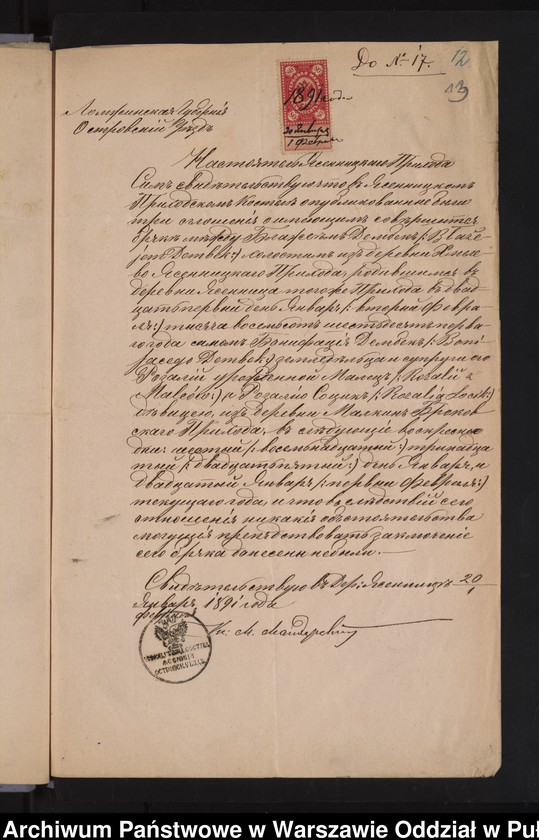 До № 17.
12
13
Ломжинская Губернія
Островскій Уѣздъ
1891 года
20 Января
1 Февраля
Настоятель Ясеницкаго Прихода
Симъ свидѣтельствую что въ Ясеницкомъ
Приходскомъ Костелѣ опубликованне были
три оглошенія о имеющимъ совершится
бракѣ между Блажеемъ Дембекъ /: Błaże-
jom Dembek :/ холостымъ изъ деревни
во Ясеницкаго Прихода, родившимся въ
деревни Ясеница тогоже Прихода въ двад-
цать первый день Январъ /: второй Февра
лъ :/ тысяча восемьсотъ шестьдесятъ перва-
го года сыномъ Бонифація Дембекъ /: Boni
facego Dembek :/ земледѣльца и супруги его
Розаліи урожденной Малецъ /: Rozalii z
Malców :/ и Розалію Социкъ /: Rozalią Socik :/
дѣвицею, изъ деревни Малкинъ Броков
скаго Прихода, въ слѣдующіе воскресные
дни: шестый /: восемьнадцатый :/ тринадца
тый /: двадцать пятый :/ день Январъ, и
двадцатый Январъ /: первый Февралъ :/
текущаго года, и что въ слѣдствій сего
отношенія никакія обстоятельства
могущія препядствовать заключеніе
сего брака донесены небыли. —
Свидѣтельствую въ Дер: Ясеница 20/1
Январъ 1891 года
Февралъ
Кс. М.
Archiwum Państwowe w Warszawie Oddział w Puł